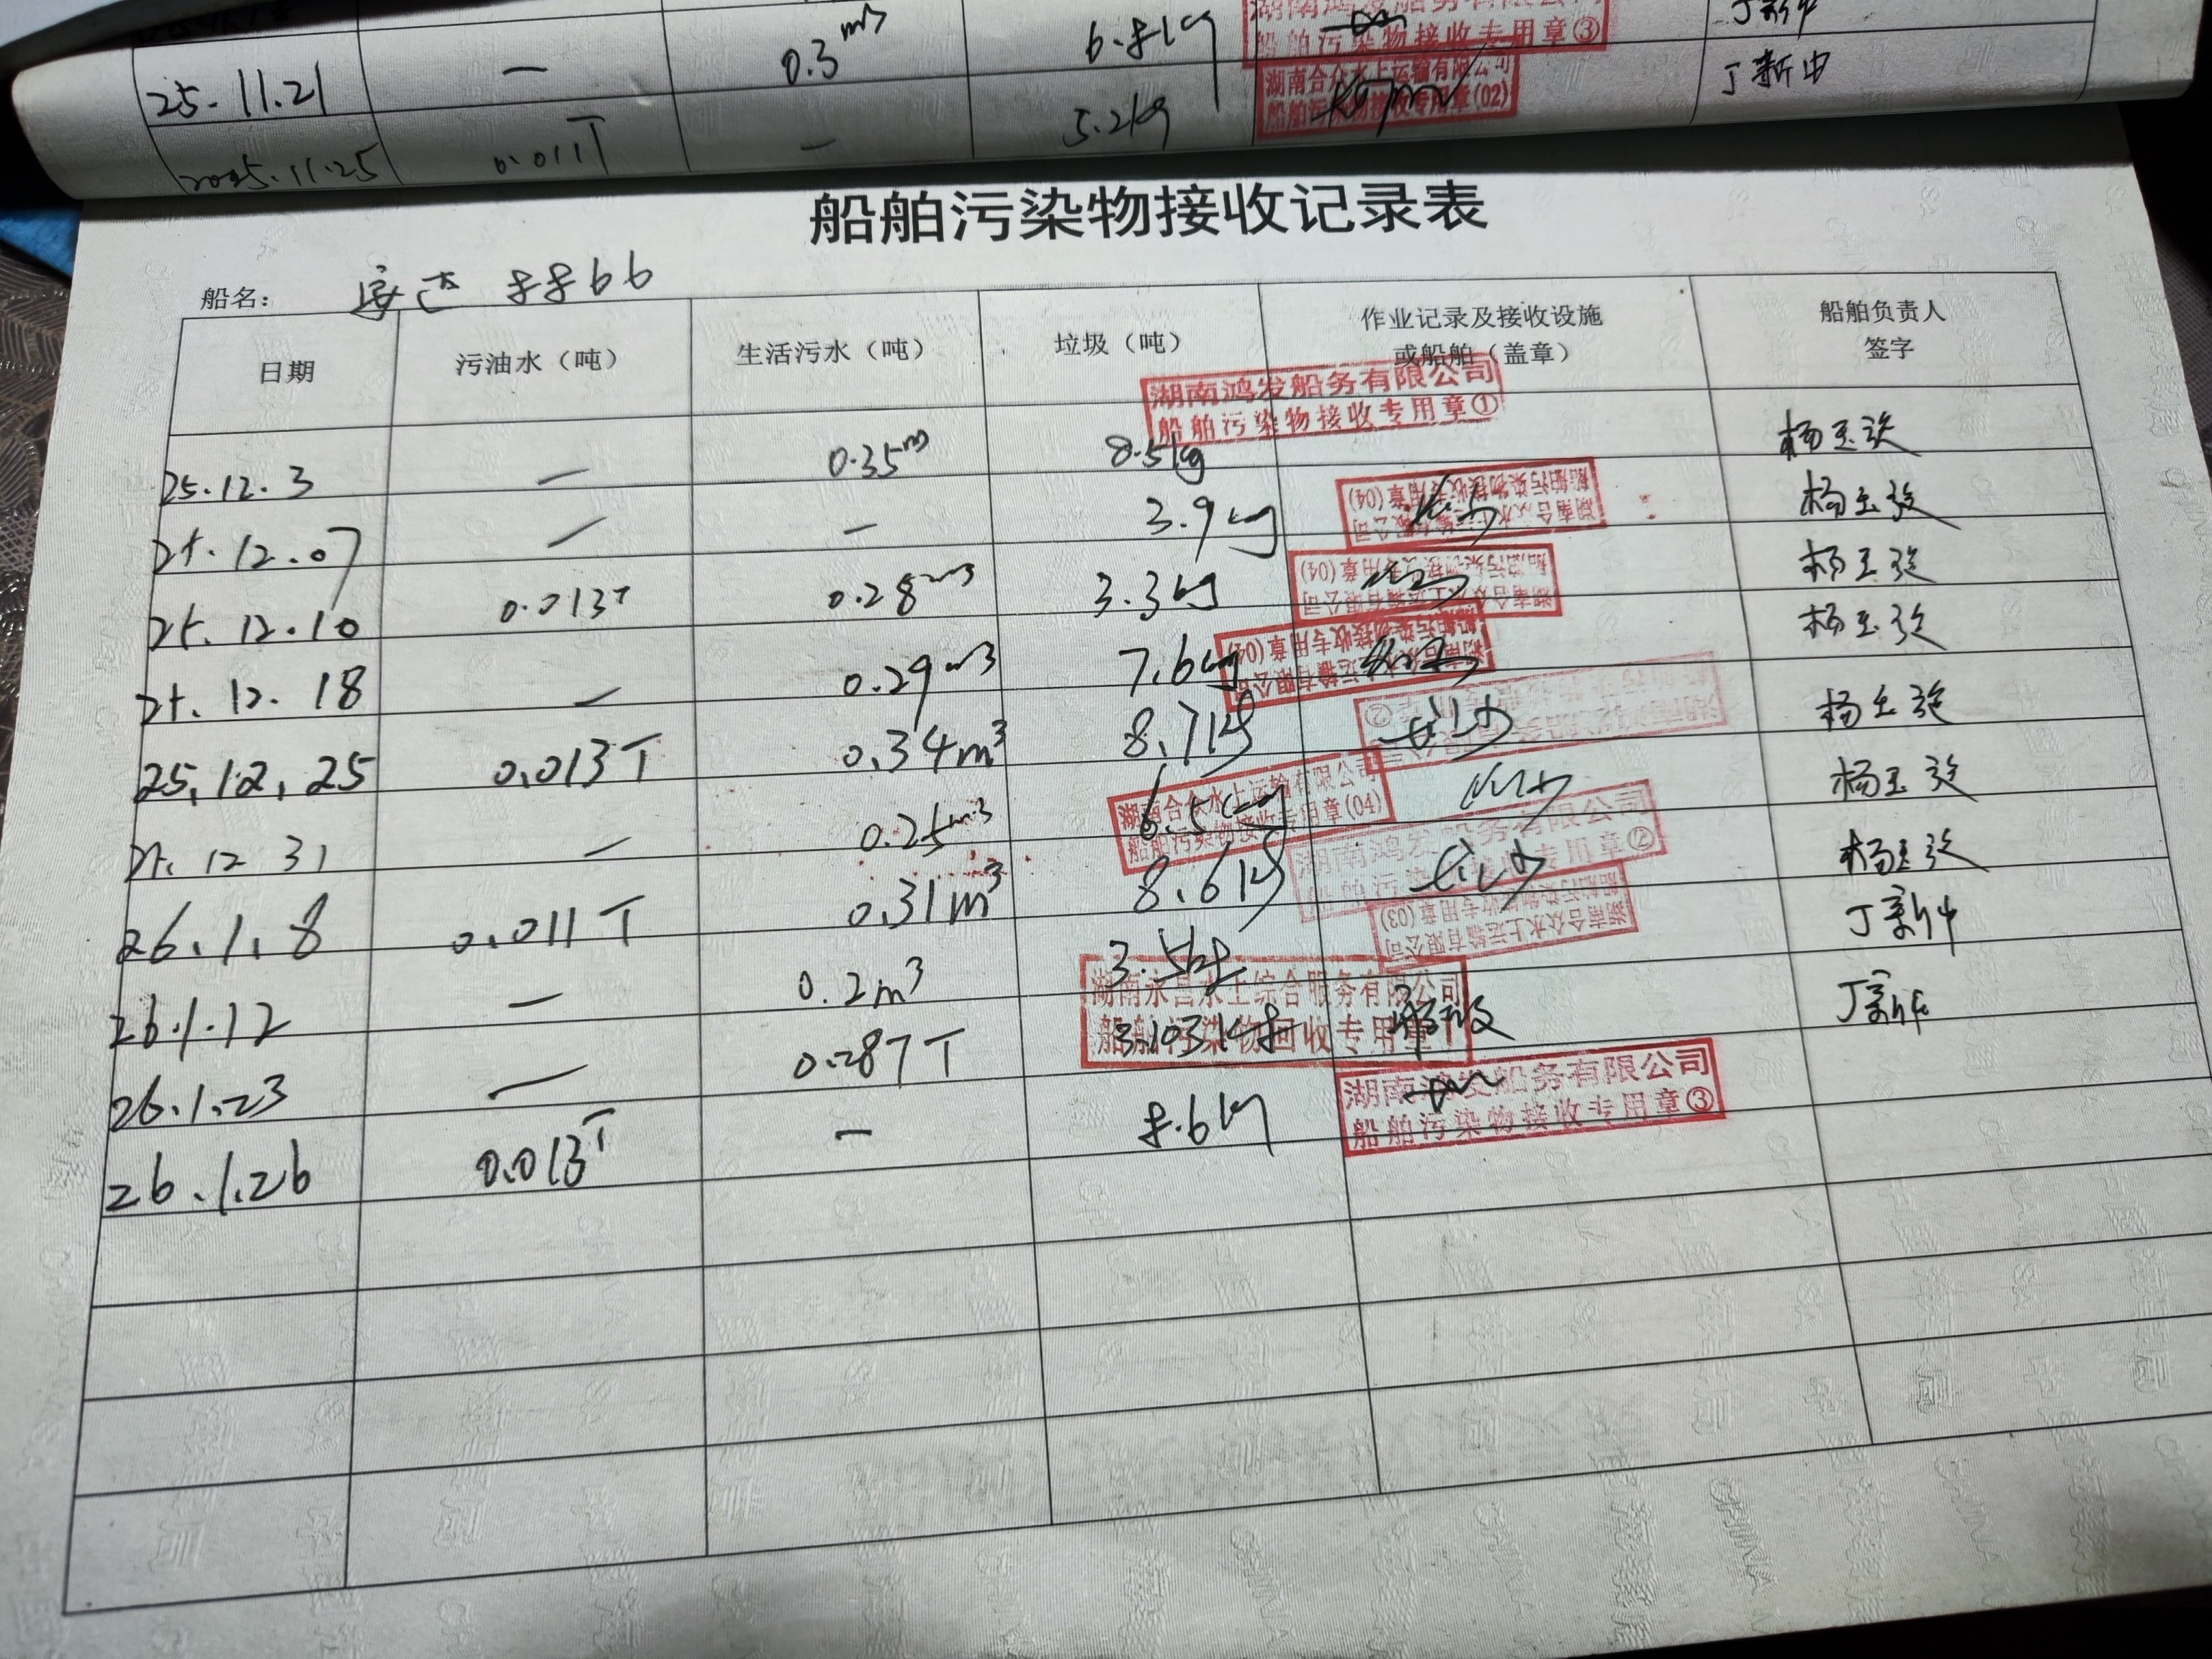 25.11.21 — 0.3m³ 6.8kg 船舶污染物接收专用章③ 丁新中
2025.11.25 0.011T — 5.2kg 湖南合众水上运输有限公司 船舶污染物接收专用章(02) 丁新中
船舶污染物接收记录表
船名： 8866
日期 污油水（吨） 生活污水（吨） 垃圾（吨） 作业记录及接收设施或船舶（盖章） 船舶负责人签字
湖南鸿发船务有限公司
船舶污染物接收专用章①
25.12.3 — 0.35m 8.5kg 杨玉
25.12.07 — — 3.9kg 湖南合众水上运输有限公司 船舶污染物接收专用章(04) 杨玉
25.12.10 0.013T 0.28m³ 3.3kg 湖南合众水上运输有限公司 船舶污染物接收专用章(04) 杨玉
25.12.18 — 0.29m³ 7.6kg 湖南合众水上运输有限公司 船舶污染物接收专用章(04) 杨玉
25.12.25 0.013T 0.34m³ 8.7kg 湖南鸿发船务有限公司 ② 杨玉
25.12 31 — 0.25m³ 6.5kg 湖南合众水上运输有限公司 船舶污染物接收专用章(04) 杨玉
26.1.8 0.011T 0.31m³ 8.6kg 湖南鸿发船务有限公司 船舶污染物接收专用章② 杨玉
26.1.12 — 0.2m³ 3.5kg 湖南合众水上运输有限公司 船舶污染物接收专用章(03) 丁新中
26.1.23 — 0.287T 3.103kg 湖南永昌水上综合服务有限公司 船舶污染物回收专用章 丁新中
26.1.26 0.013T — 8.6kg 湖南鸿发船务有限公司 船舶污染物接收专用章③